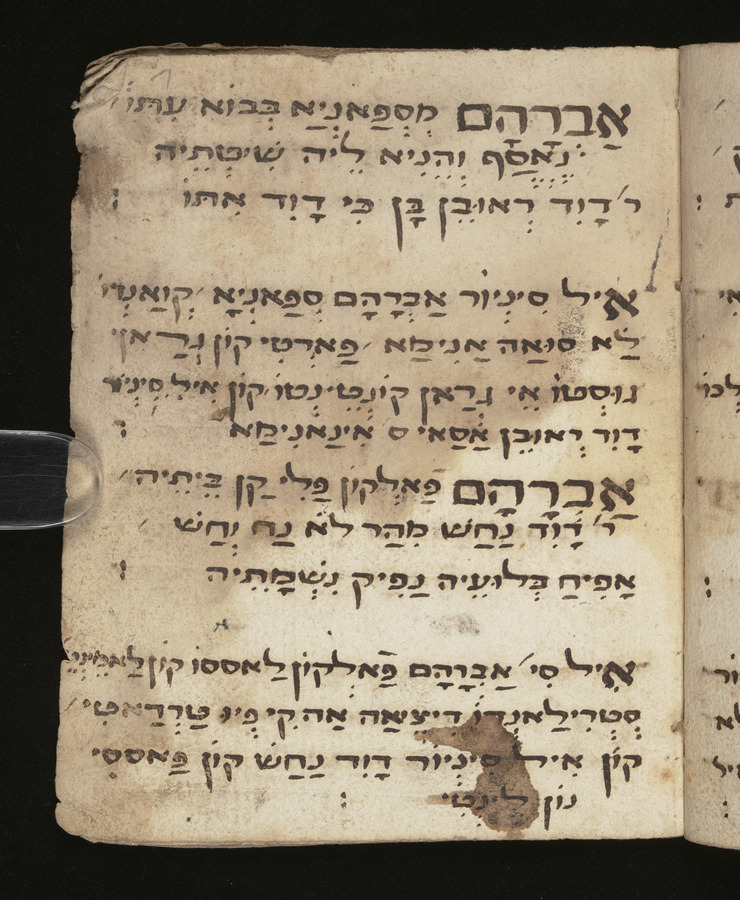 אַבְרָהָם מִסְפַּאנְיַא בְּבוֹא עִתּוֹ
נֶאֱסַף וְהֵנִיא לֵיהּ שִׁיטְתֵיהּ
ר׳ דָוִד רְאוּבֵן בָּן כִּי דָוִד אִתּוֹ :
אֵיל סִינְיוֹר אַבְרָהָם סְפַּאנְיָא
לַא סוּאַה אַנִימַא פַּארְטִי קוֹן גְרַאן
גוּסְטוֹ אֵי גְרַאן קוֹנְטֵינְטוֹ קוֹן אֵיל סִינְיוֹר
דָוִד רְאוּבֵן אַסַאי ס אִינַאנִימַא :
אַבְרָהָם פַאלְקוֹן פַּלִי קַן בֵּיתֵיהּ
ר׳ דָוִד נַחַשׁ מִהַר לֹא נַח וְחַשׁ
אַפִּיחַ בְּלוֹעֵיהּ נַפִּיק נִשְׁמָתֵיהּ :
אֵיל סִי׳ אַבְרָהָם פַאלְקוֹן לַאססוֹ קוֹן
סְטְרִילַאנְדוֹ דִיצִיאַה אַה קִי פִיוּ טַרְדַאטִי
קוֹן אֵיל סִינְיוֹר דָוִד נַחַשׁ קוֹן פַּאססִי
נוֹן לֵינְטִי :